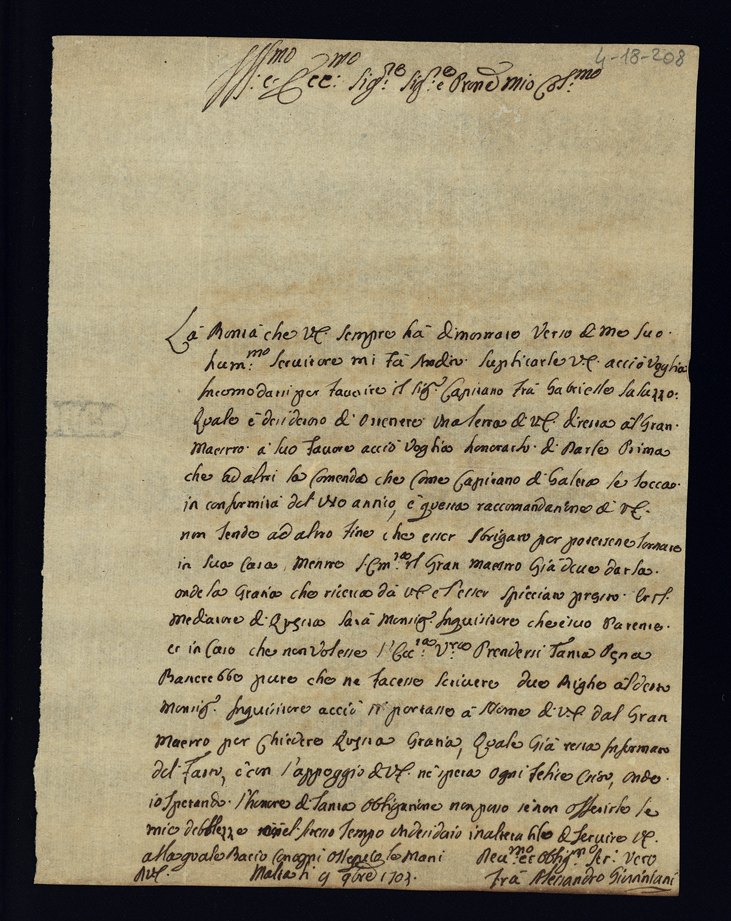 4-18-208
Ill:mo et Ecc:mo Sig:re Sig:re e Pron̄e mio Col:mo
La Bontà che V.E. sempre hà dimostrato verso di me suo
hum:mo Servitore mi fà ardire supplicarle V.E. acciò voglia
Incomodarsi per favorire il Sig:r Capitano frà Gabriello Saluzzo
Quale è desideroso di ottenere una lettera di V.E. diretta al Gran
Maestro à suo favore acciò voglia honorarlo di Darle Prima
che ad altri la Comenda che come Capitano di Galera se tocca
in conformità del uso annio, e questa raccomandatione di V.E.
non tende ad altro fine che esser sbrigato per potersene tornare
in sua Casa, Mentre S. Em:za il Gran Maestro Già deve darla
onde la Gratia che ricerca dà V.E. è l'esser spicciato presto
Mediatore di Questa sarà Monsig:r Inquisitore che è suo Parente
et in Caso che non Volesse l'Ecc:za V:ra Prendersi Tanta Pena
Bastarebbe pure che ne facesse scrivere due Righe al detto
Monsig:r Inquisitore acciò si portasse à Nome di V.E. dal Gran
Maestro per Chiedere Questa Gratia, Quale Già resta Informato
del Fatto, e con l'appoggio di V.E. ne spera ogni felice Esito, onde
io sperando l'honore di Tanta obligatione non posso se non offerirle le
mie debolezze nel stesso Tempo un desiderio inalterabile di servire V.E.
alla quale Bacio con ogni ossequio le Mani
Di V.E. Malta li 9 9bre 1703.
Dev:mo et oblig:mo Ser: Vero
Frà Alessandro Giustiniani